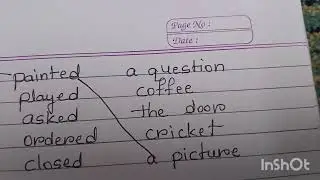 Page No :
Date :
painted a question
played coffee
asked the door
ordered cricket
closed a picture
InShOt